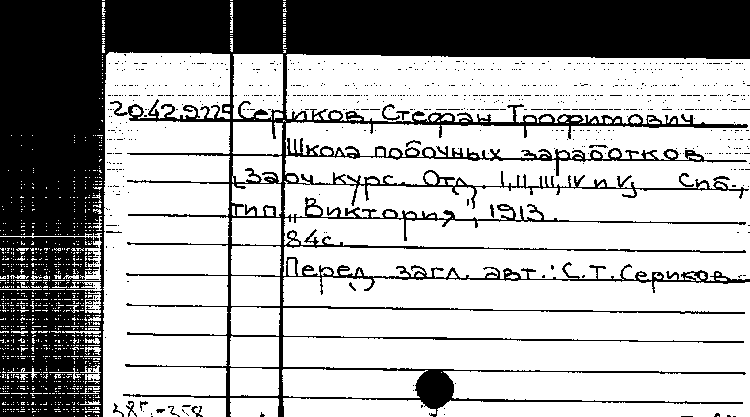 20.42.9225 Сериков, Стефан Трофимович.
Школа побочных заработков
[Заоч. курс. Отд. I, II, III, IV и V]. Спб.,
тип. "Виктория", 1913.
84с.
Перед загл. авт.: С.Т.Сериков